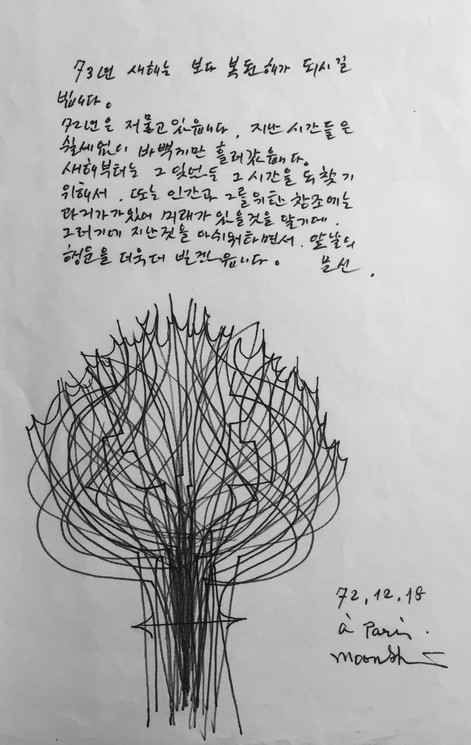 73년 새해는 보다 복된 해가 되시길
빕니다.
72년은 저물고 있읍니다. 지난 시간들은
쉴세없이 바쁘게만 흘러갔읍니다.
새해부터는 그 잊었든 그 시간을 되찾기
위해서, 또는 인간과 그를 위한 창조에는
과거가 있어 미래가 있을것을 알기에.
그러기에 지난것을 아쉬워하면서. 앞날의
행운을 더욱더 빌 뿐입니다. 문선.
72, 12, 18
à Paris.
moonsh